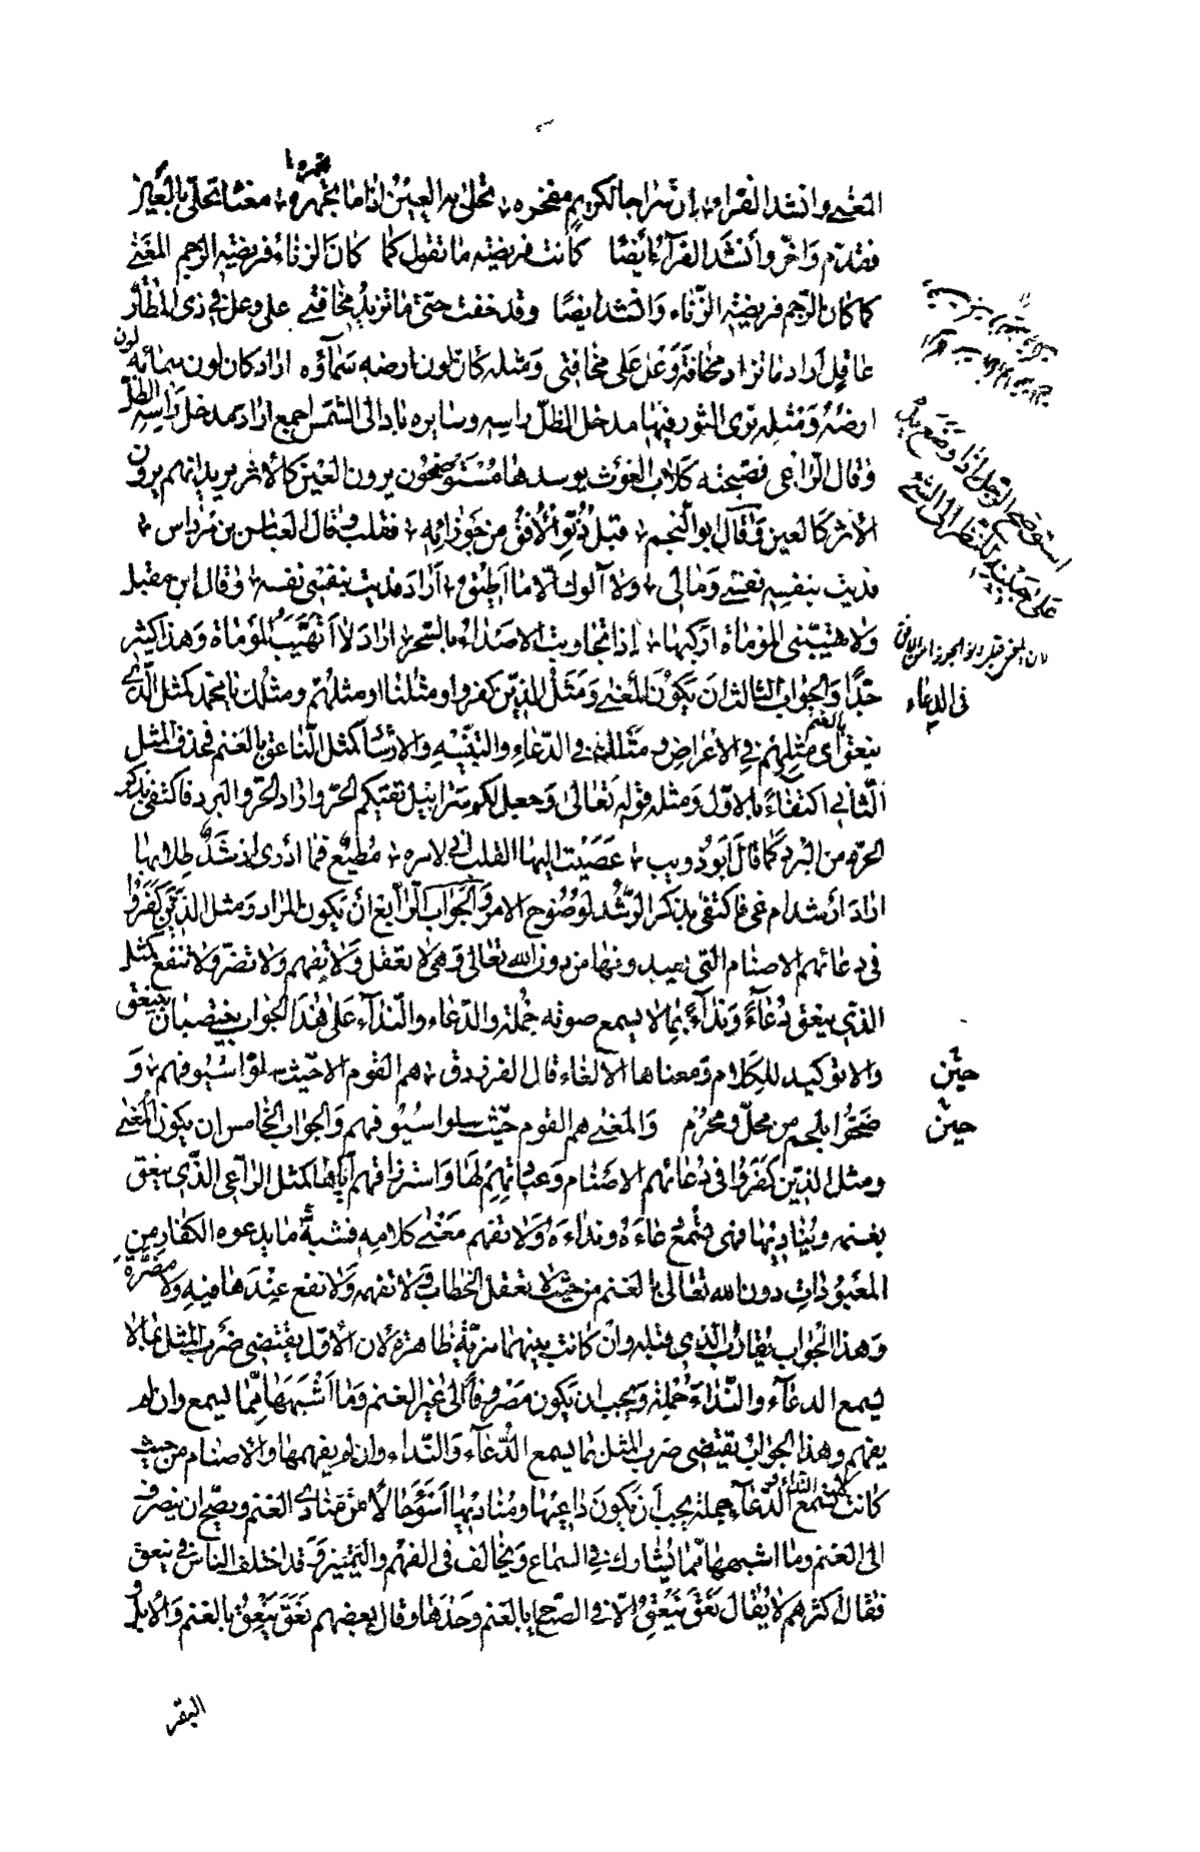 المعنى وانشد الفراء إن سراجا لكريم مفخره تحلى به العين اذا ما تجهره معناه تحلى بالعين
فقدم واخر وأنشد الفراء أيضا كانت فريضة ما تقول كما كان الزناء فريضة الرجم المعنى
كما كان الرجم فريضة الزناء وانشد ايضا وقد خفت حتى ما تزيد مخافتي على وعل في ذي المطارة
عاقل أراد ما تزاد مخافة وعل على مخافتي ومثله كأن لون ارضه سماؤه اراد كان لون سمائه لون
ارضه ومثله ترى الثور فيها مدخل الظل راسه وسايره باد الى الشمس اجمع اراد مدخل راسه الظل
وقال الراعي فصبحته كلاب الغوث يوسدها مستوضحون يرون العين كالاثر يريد انهم يرون
الاثر كالعين وقال ابو النجم قبل دنو الأفق من جوزائه فقلب وقال العباس بن مرداس
فديت بنفسه نفسي ومالي ولا آلوك الا ما اطيق أراد فديت بنفسي نفسه وقال ابن مقبل
ولا تهيبني الموماة اركبها إذا تجاوبت الاصداء بالسحر اراد لا أتهيب الموماة وهذا كثير
جدا والجواب الثالث ان يكون المعنى ومثل الذين كفروا ومثلنا او مثلهم ومثلك يا محمد كمثل الذي
ينعق اى مثلهم في الاعراض ومثلك في الدعاء والتنبيه والارشاد كمثل الناعق بالغنم فحذف المثل
الثاني اكتفاء بالاول ومثله قوله تعالى وجعل لكم سرابيل تقيكم الحر واراد الحر والبرد فاكتفى بذكر
الحر من البرد كما قال ابو ذويب عصيت اليها القلب اني لامره مطيع فما أدرى ارشد طلابها
اراد أرشد ام غى فاكتفى بذكر الرشد لوضوح الامر والجواب الرابع أن يكون المراد ومثل الذين كفروا
في دعائهم الاصنام التى يعبدونها من دون الله تعالى وهى لا تعقل ولا تفهم ولا تضر ولا تنفع كمثل
الذي ينعق دعآء ونداء بما لا يسمع صوته جملة والدعاء والندآء على هذا الجواب ينتصبان بينعق
والا توكيد للكلام ومعناها الالغاء قال الفرزدق هم القوم الا حيث سلوا سيوفهم و
ضحوا بلحم من محل ومحرم والمعنى هم القوم حيث سلوا سيوفهم والجواب الخامس ان يكون المعنى
ومثل الذين كفروا في دعائهم الاصنام وعبادتهم لها واسترزاقهم اياها كمثل الراعي الذي ينعق
بغنمه ويناديها فهي تسمع دعاءه ونداءه ولا تفهم معنى كلامه فشبه ما يدعوه الكفار من
المعبودات دون الله تعالى بالغنم من حيث لا تعقل الخطاب ولا تفهمه ولا نفع عندها فيه ولا مضرة
وهذا الجواب يقارب الذي قبله وان كانت بينهما مزية ظاهرة لان الأول يقتضي ضرب المثل بما لا
يسمع الدعآء والنداء جملة ويجب ان يكون مصروفا الى غير الغنم وما أشبهها مما يسمع وان لم
يفهم وهذا الجواب يقتضى ضرب المثل بما يسمع الدعآء والنداء وان لم يفهمها والاصنام من حيث
كانت لا تسمع الدعآء جملة يجب أن يكون داعيها ومناديها أسوء حالا من منادى الغنم ويصح ان يصرف
الى الغنم وما اشبهها مما يشارك في السماع ويخالف في الفهم والتمييز وقد اختلف الناس في ينعق
فقال اكثرهم لا يقال نعق ينعق الا في الصياح بالغنم وحدها وقال بعضهم نعق ينعق بالغنم والابل و
استوضح الرجل اذا وضع يده
على جبينه لينظر الى الشئ
في الدعاء
حين
حين
البقر